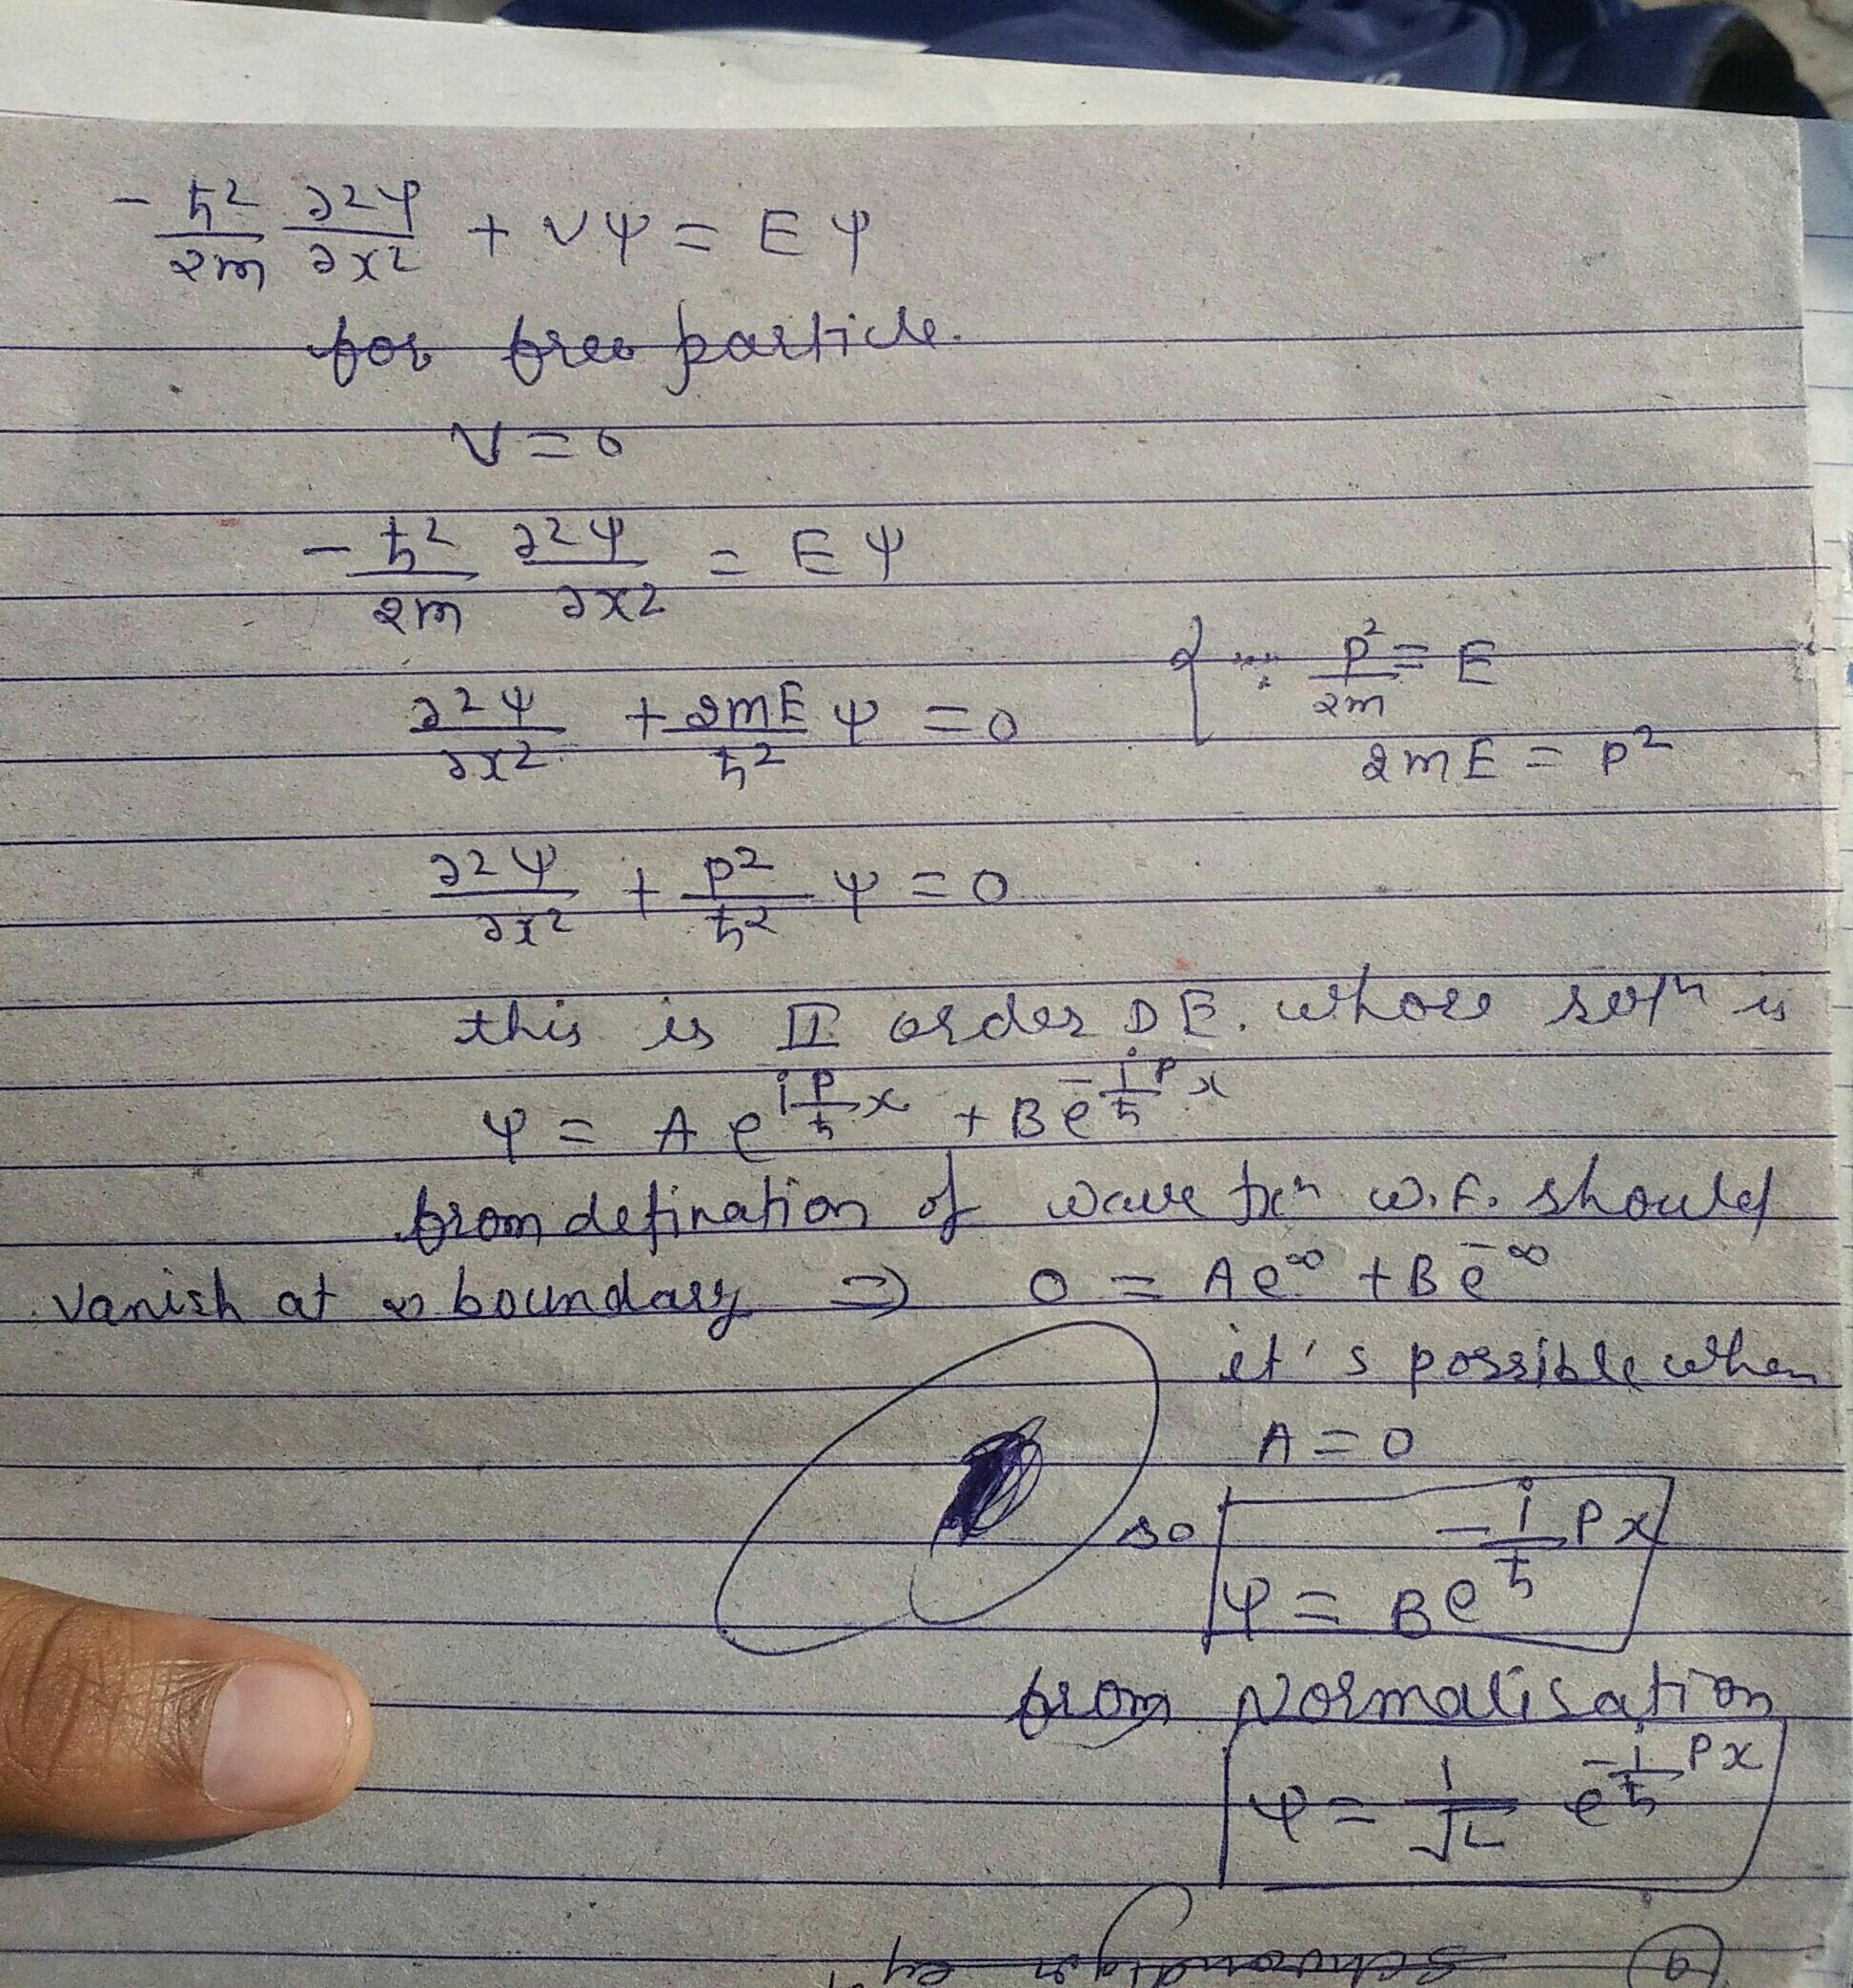 - ħ²/2m ∂²ψ/∂x² + Vψ = Eψ
for free particle.
V = 0
- ħ²/2m ∂²ψ/∂x² = Eψ
{ ∵ p²/2m = E
∂²ψ/∂x² + 2mE/ħ² ψ = 0
2mE = p²
∂²ψ/∂x² + p²/ħ² ψ = 0
this is II order DE. whose solⁿ is
ψ = A e^{i p/ħ x} + B e^{-i/ħ p x}
from defination of wave fxⁿ w.f. should
vanish at ∞ boundary ⇒ 0 = A e^∞ + B e^{-∞}
it's possible when
A = 0
so ψ = B e^{-i/ħ P x}
from Normalisation
ψ = 1/√L e^{-i/ħ P x}